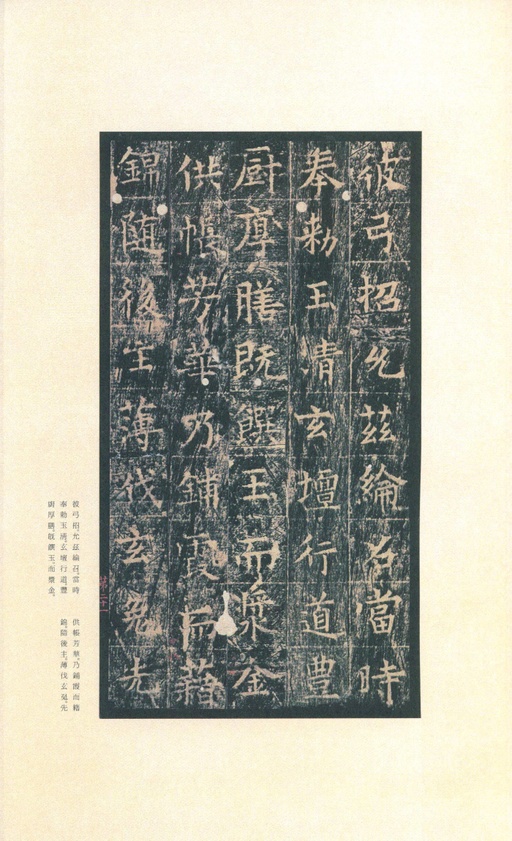 彼弓招允茲綸召當時
奉勅玉清玄壇行道豊
厨厚膳既饌玉而漿金
供帳芳華乃鋪霞而藉
錦随後主薄伐玄菟先
彼弓招,允茲綸召。當時
奉勅玉清玄壇行道,豐
厨厚膳,既饌玉而漿金。
供帳芳華,乃鋪霞而藉
錦。隨後主薄伐玄菟,先